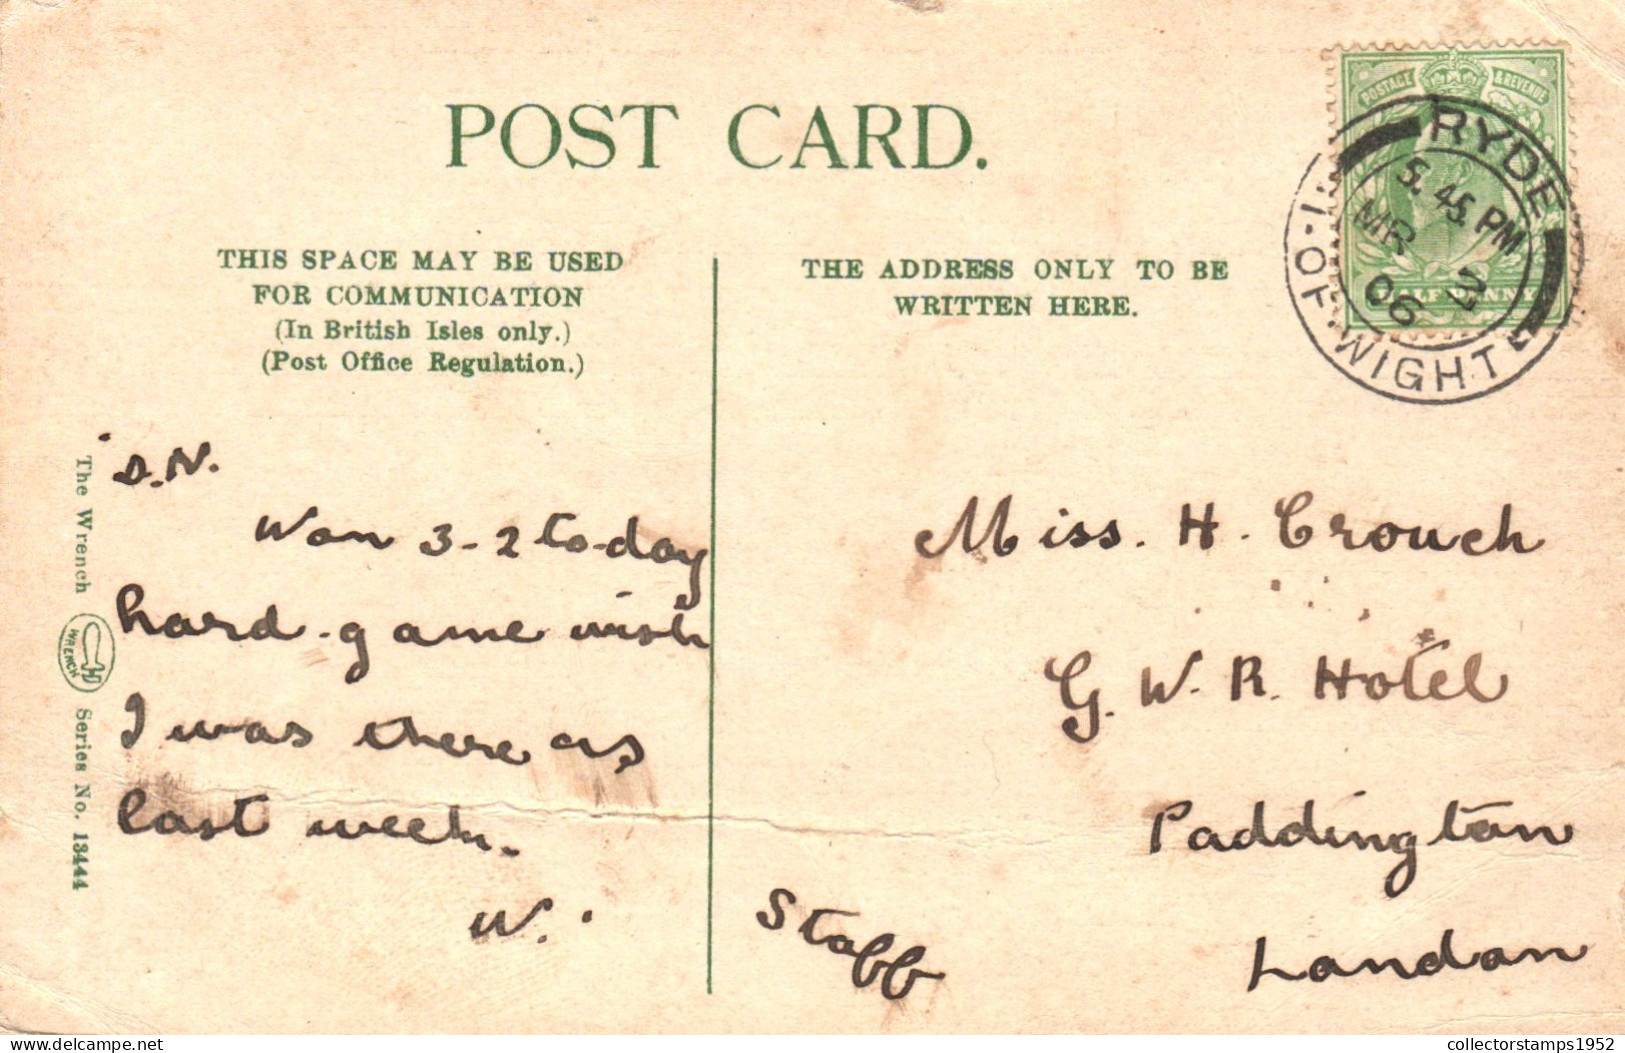 POST CARD.
POSTAGE & REVENUE
RYDE
5.45 PM
MR 3
06
I. OF. WIGHT
THIS SPACE MAY BE USED
FOR COMMUNICATION
(In British Isles only.)
(Post Office Regulation.)
THE ADDRESS ONLY TO BE
WRITTEN HERE.
D.N.
Won 3-2 to-day
hard game wish
I was there as
last week.
W.
Miss. H. Crouch
G. W. R. Hotel
Paddington
London
Staff
The Wrench WRENCH Series No. 13444
delcampe.net
collectorstamps1952